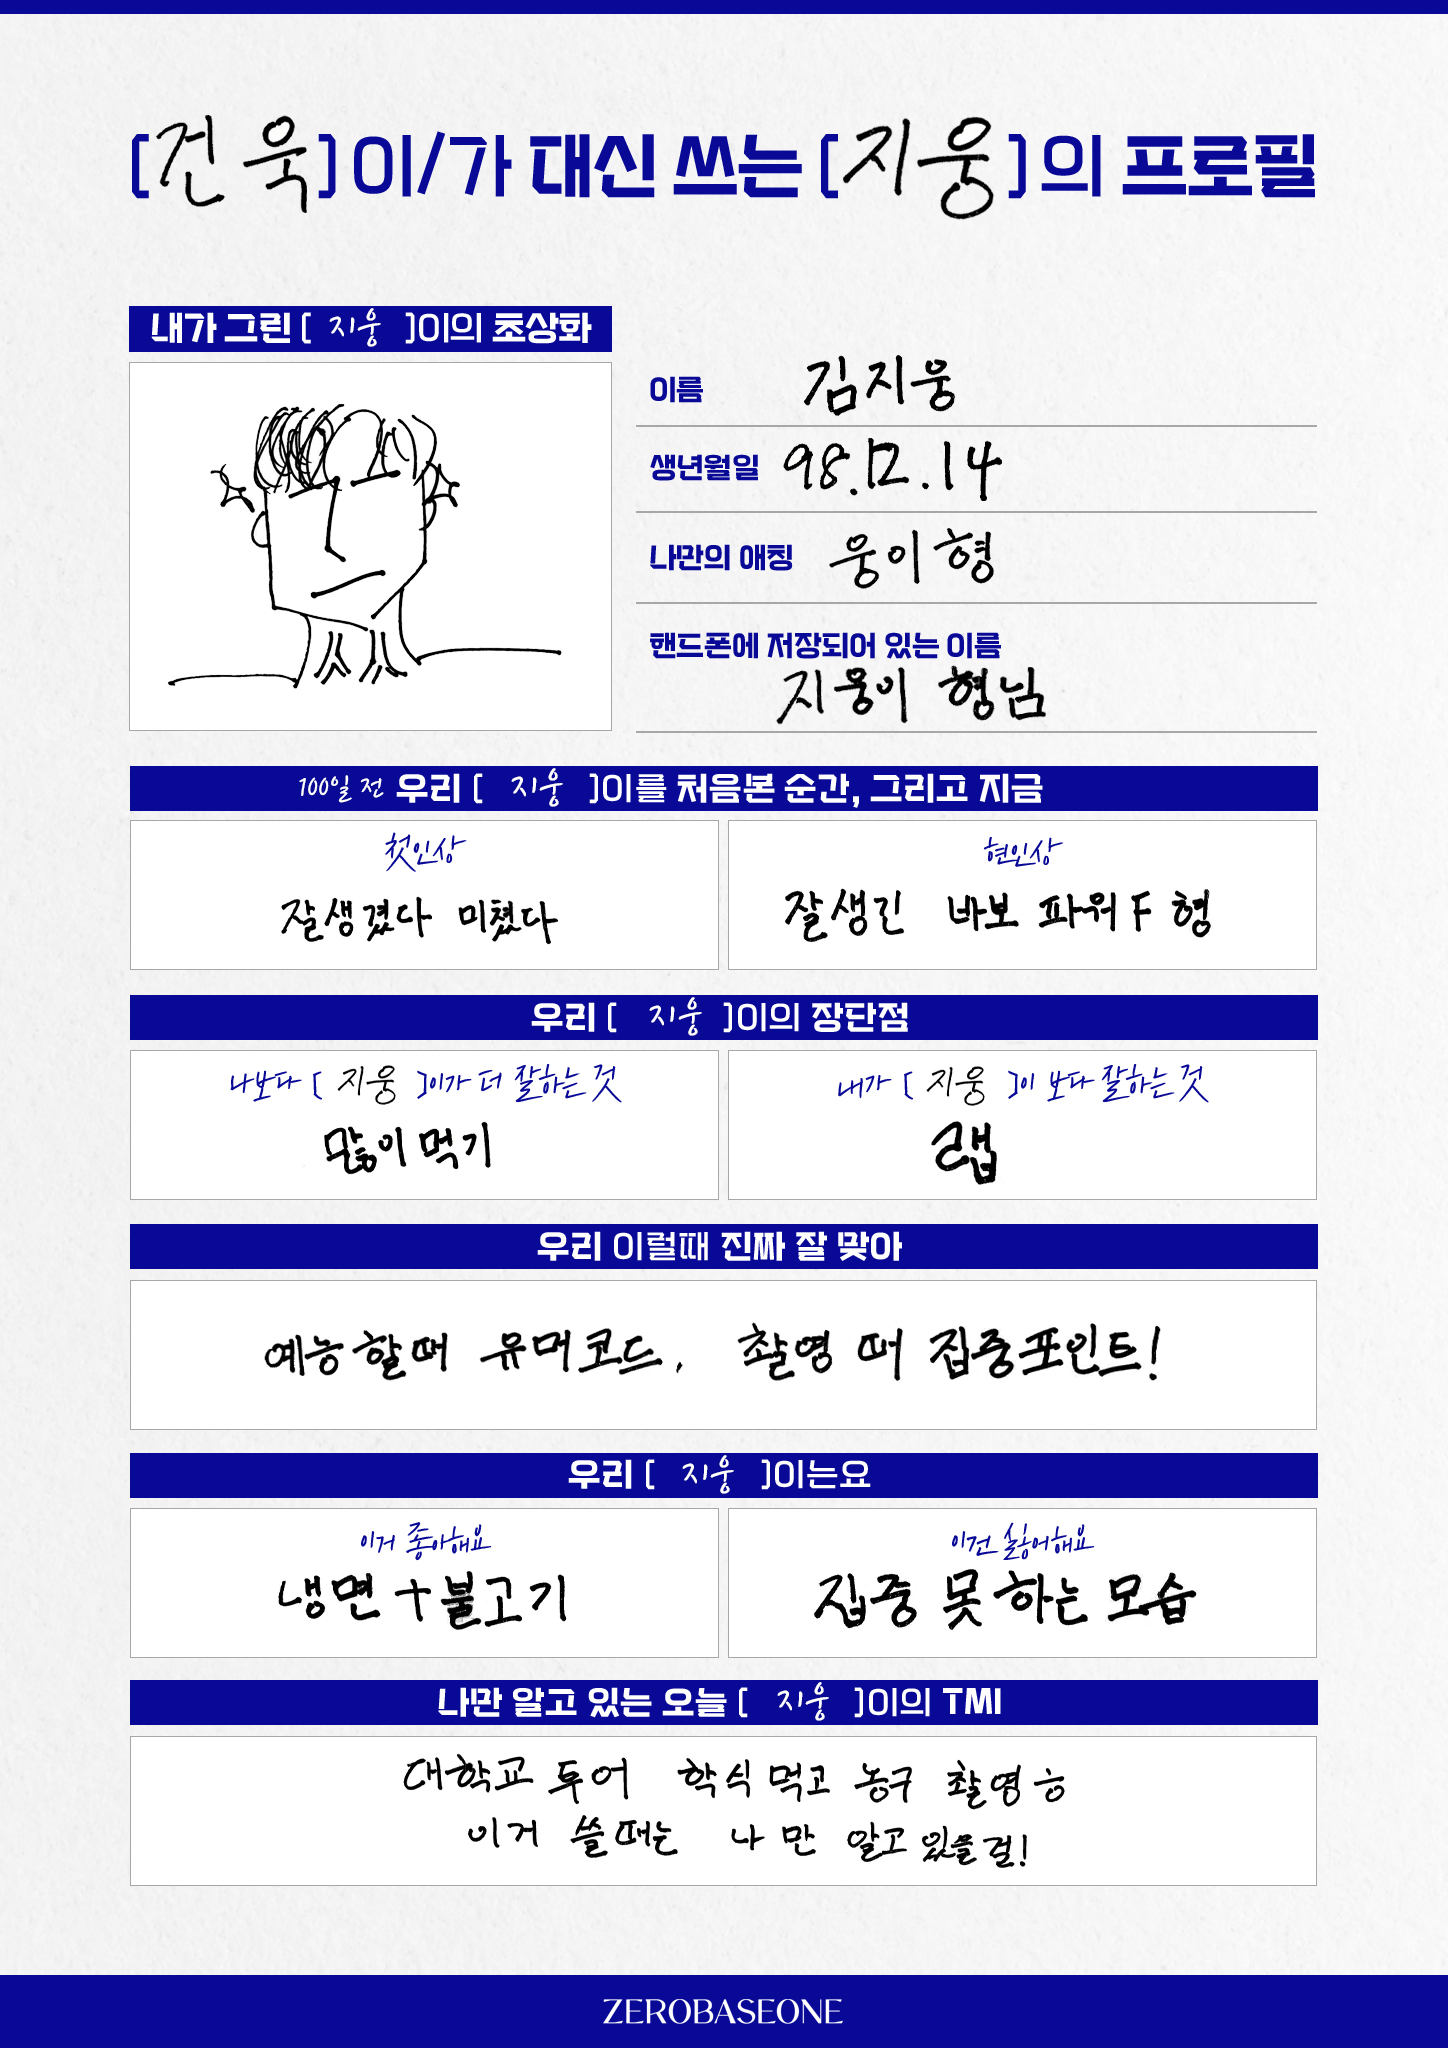 [건욱]이/가 대신 쓰는 [지웅]의 프로필
내가 그린 [ 지웅 ]이의 초상화
이름 김지웅
생년월일 98.12.14
나만의 애칭 웅이형
핸드폰에 저장되어 있는 이름
지웅이 형님
100일 전 우리 [ 지웅 ]이를 처음본 순간, 그리고 지금
첫인상
잘생겼다 미쳤다
현인상
잘생긴 바보 파워F 형
우리 [ 지웅 ]이의 장단점
나보다 [ 지웅 ]이가 더 잘하는 것
많이 먹기
내가 [ 지웅 ]이 보다 잘하는 것
랩
우리 이럴때 진짜 잘 맞아
예능할때 유머코드, 촬영 때 집중포인트!
우리 [ 지웅 ]이는요
이거 좋아해요
냉면+불고기
이건 싫어해요
집중 못하는 모습
나만 알고 있는 오늘 [ 지웅 ]이의 TMI
대학교 투어 학식 먹고 농구 촬영 ㅎ
이거 쓸때는 나만 알고 있을걸!
ZEROBASEONE